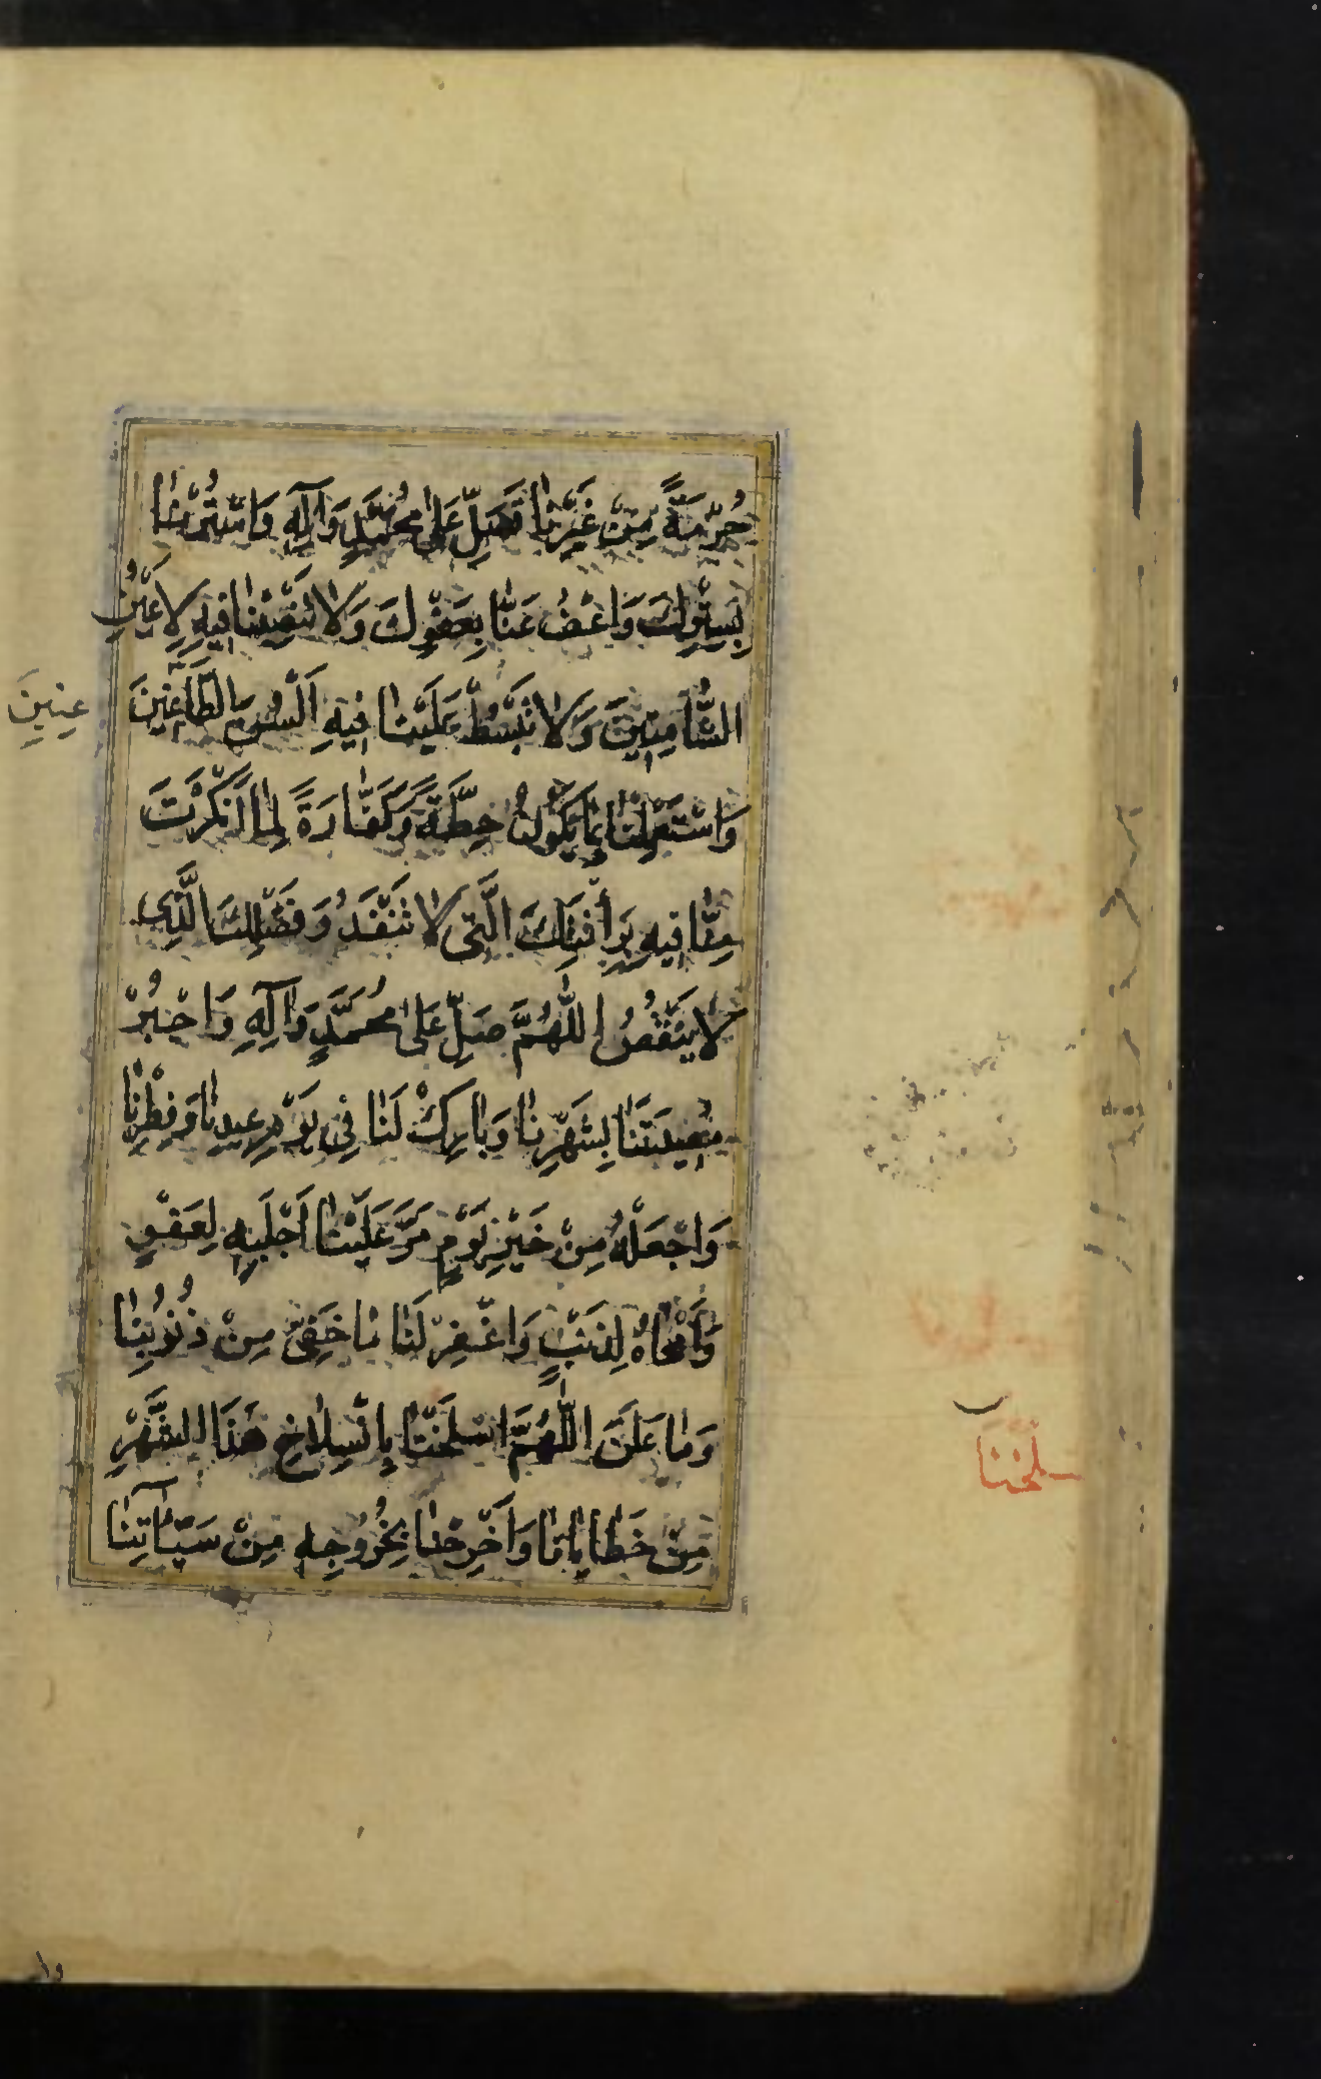 حُرْمَةً مِنْ غَيْرِنَا فَصَلِّ عَلَى مُحَمَّدٍ وَآلِهِ وَاسْتُرْنَا
بِسِتْرِكَ وَاعْفُ عَنَّا بِعَفْوِكَ وَلَا تَنْصِبْنَا فِيهِ لِأَعْيُنِ
الشَّامِتِينَ وَلَا تَبْسُطْ عَلَيْنَا فِيهِ اَلْسُنَ الطَّاعِنِينَ
عِنِينَ
وَاسْتَعْمِلْنَا بِمَا يَكُونُ حِطَّةً وَكَفَّارَةً لِمَا اَنْكَرْتَ
مِنَّا فِيهِ بِرَأْفَتِكَ الَّتِى لَا تَنْفَدُ وَفَضْلِكَ الَّذِى
لَا يَنْقُصُ اللّٰهُمَّ صَلِّ عَلَى مُحَمَّدٍ وَآلِهِ وَاجْبُرْ
مُصِيبَتَنَا بِشَهْرِنَا وَبَارِكْ لَنَا فِى يَوْمِ عِيدِنَا وَفِطْرِنَا
وَاجْعَلْهُ مِنْ خَيْرِ يَوْمٍ مَرَّ عَلَيْنَا اَجْلَبِهِ لِعَفْوٍ
وَاَمْحَاهُ لِذَنْبٍ وَاغْفِرْ لَنَا مَا خَفِىَ مِنْ ذُنُوبِنَا
وَمَا عَلَنَ اللّٰهُمَّ اسْلَخْنَا بِانْسِلَاخِ هٰذَا الشَّهْرِ
سلخنا
مِنْ خَطَايَانَا وَاَخْرِجْنَا بِخُرُوجِهِ مِنْ سَيِّئَاتِنَا
وا